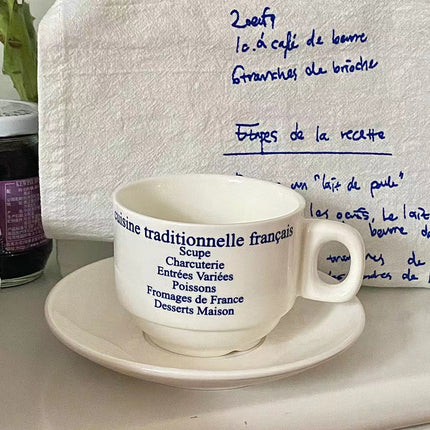 2 oeufs
1c. à café de beurre
6 tranches de brioche
Etapes de la recette
un "lait de poule"
les oeufs, le lait
beurre
de
de
cuisine traditionnelle français
Scupe
Charcuterie
Entrées Variées
Poissons
Fromages de France
Desserts Maison